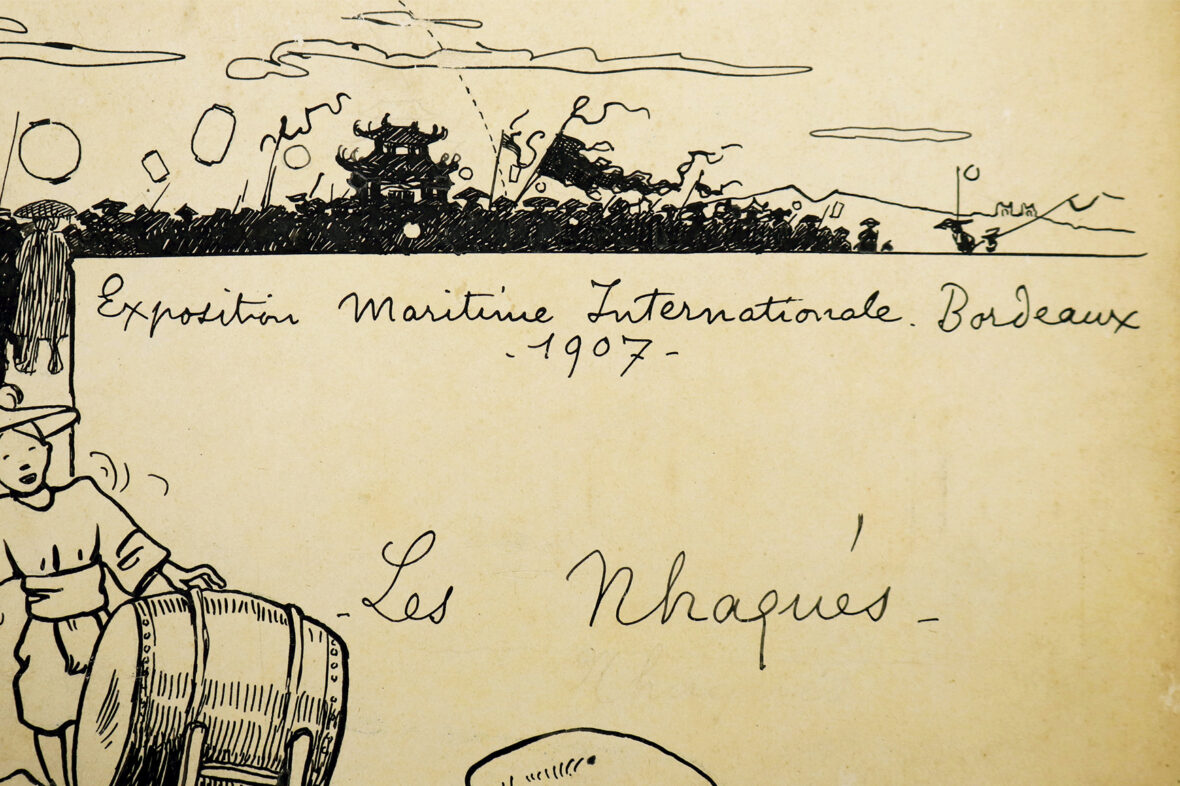 Exposition Maritime Internationale. Bordeaux
-1907-
- Les Nhaqués -